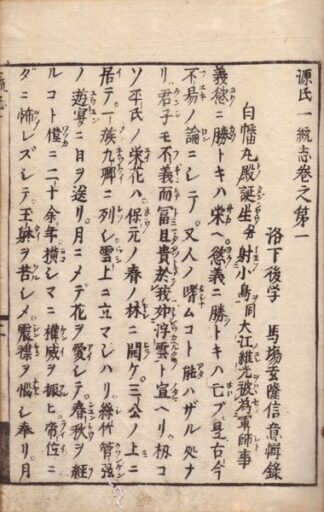 源氏一統志卷之第一
洛下後学 馬場玄隆信意輯録
白幡丸殿誕生并射小鳥同大江維光被為軍師事
義慾ニ勝トキハ栄ヘ。慾義ニ勝トキハ亡ブ。是古今
不易ノ論ニシテ。又人ノ嗜ムコト能ハザル処ナ
リ。君子モ不義而冨且貴於我如浮雲ト宣ヘリ。扨コ
ソ平氏ノ栄花ハ保元ノ春ノ林ニ開ケ。三公ノ上ニ
居テ。一族九卿ニ列シ雲上ニ立マジハリ。絲竹管弦
ノ遊宴ニ日ヲ送リ。月ニメデ花ヲ愛シテ。春秋ヲ経
ルコト僅ニ二十余年。横シマニ権威ヲ振ヒ。帝位ニ
ダニ怖レズシテ。王躰ヲ苦シメ震襟ヲ悩シ奉リ。月